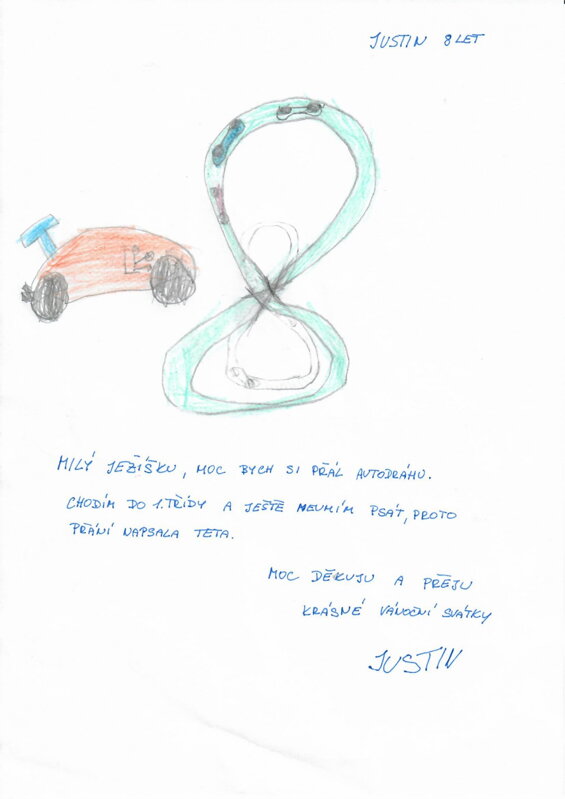 JUSTIN 8 LET
MILÝ JEŽÍŠKU, MOC BYCH SI PŘÁL AUTODRÁHU.
CHODÍM DO 1. TŘÍDY A JEŠTĚ NEUMÍM PSÁT, PROTO
PŘÁNÍ NAPSALA TETA.
MOC DĚKUJU A PŘEJU
KRÁSNÉ VÁNOČNÍ SVÁTKY
JUSTIN